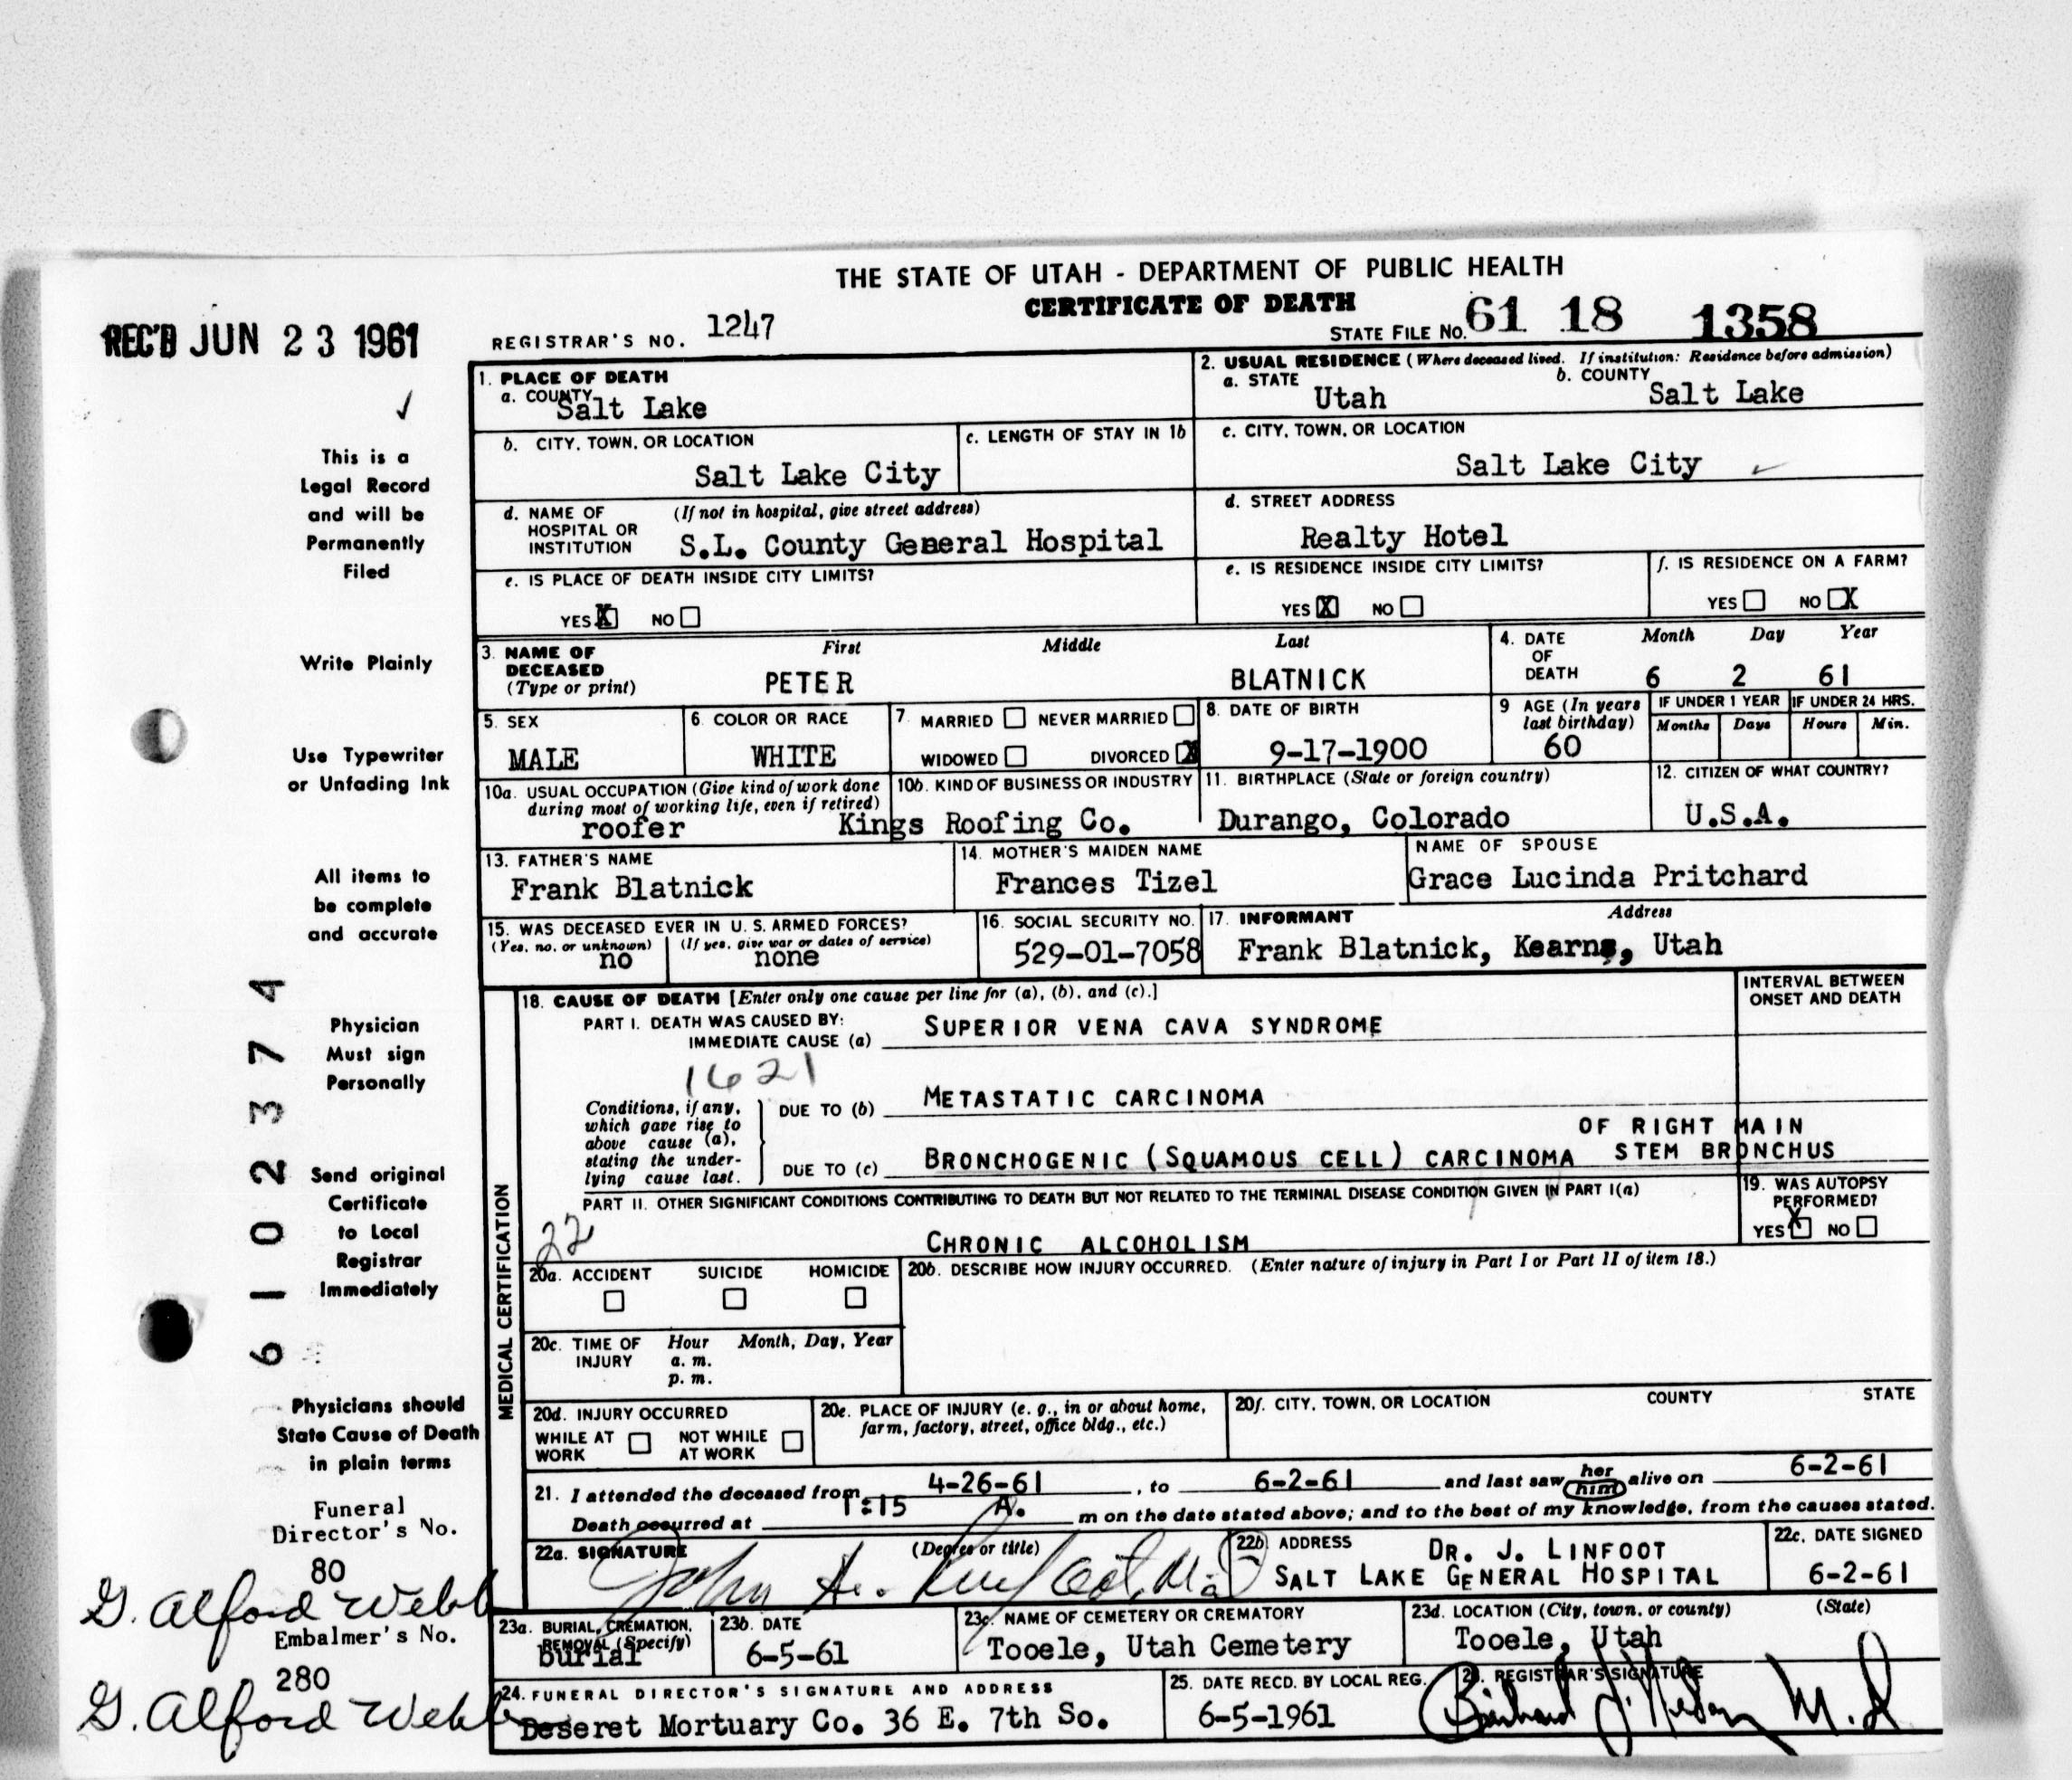 THE STATE OF UTAH - DEPARTMENT OF PUBLIC HEALTH
CERTIFICATE OF DEATH
REC'D JUN 23 1961
REGISTRAR'S NO. 1247
STATE FILE NO. 61 18 1358
1. PLACE OF DEATH
a. COUNTY Salt Lake
2. USUAL RESIDENCE (Where deceased lived. If institution: Residence before admission)
a. STATE Utah b. COUNTY Salt Lake
b. CITY, TOWN, OR LOCATION Salt Lake City
c. LENGTH OF STAY IN 1b
c. CITY, TOWN, OR LOCATION Salt Lake City
d. NAME OF HOSPITAL OR INSTITUTION (If not in hospital, give street address) S.L. County General Hospital
d. STREET ADDRESS Realty Hotel
e. IS PLACE OF DEATH INSIDE CITY LIMITS? YES X NO
e. IS RESIDENCE INSIDE CITY LIMITS? YES X NO
f. IS RESIDENCE ON A FARM? YES NO X
3. NAME OF DECEASED (Type or print) First PETER Middle Last BLATNICK
4. DATE OF DEATH Month 6 Day 2 Year 61
5. SEX MALE
6. COLOR OR RACE WHITE
7. MARRIED NEVER MARRIED
WIDOWED DIVORCED X
8. DATE OF BIRTH 9-17-1900
9 AGE (In years last birthday) 60
IF UNDER 1 YEAR Months Days
IF UNDER 24 HRS. Hours Min.
10a. USUAL OCCUPATION (Give kind of work done during most of working life, even if retired) roofer
10b. KIND OF BUSINESS OR INDUSTRY Kings Roofing Co.
11. BIRTHPLACE (State or foreign country) Durango, Colorado
12. CITIZEN OF WHAT COUNTRY? U.S.A.
13. FATHER'S NAME Frank Blatnick
14. MOTHER'S MAIDEN NAME Frances Tizel
NAME OF SPOUSE Grace Lucinda Pritchard
15. WAS DECEASED EVER IN U.S. ARMED FORCES?
(Yes, no, or unknown) no (If yes, give war or dates of service) none
16. SOCIAL SECURITY NO. 529-01-7058
17. INFORMANT Address
Frank Blatnick, Kearns, Utah
MEDICAL CERTIFICATION
18. CAUSE OF DEATH [Enter only one cause per line for (a), (b), and (c).]
INTERVAL BETWEEN ONSET AND DEATH
PART I. DEATH WAS CAUSED BY:
IMMEDIATE CAUSE (a) SUPERIOR VENA CAVA SYNDROME
1621
Conditions, if any, which gave rise to above cause (a), stating the underlying cause last.
DUE TO (b) METASTATIC CARCINOMA
DUE TO (c) BRONCHOGENIC (SQUAMOUS CELL) CARCINOMA OF RIGHT MAIN STEM BRONCHUS
PART II. OTHER SIGNIFICANT CONDITIONS CONTRIBUTING TO DEATH BUT NOT RELATED TO THE TERMINAL DISEASE CONDITION GIVEN IN PART I(a)
22
CHRONIC ALCOHOLISM
19. WAS AUTOPSY PERFORMED? YES X NO
20a. ACCIDENT SUICIDE HOMICIDE
20b. DESCRIBE HOW INJURY OCCURRED. (Enter nature of injury in Part I or Part II of item 18.)
20c. TIME OF INJURY Hour a. m. p. m. Month, Day, Year
20d. INJURY OCCURRED
WHILE AT WORK NOT WHILE AT WORK
20e. PLACE OF INJURY (e. g., in or about home, farm, factory, street, office bldg., etc.)
20f. CITY, TOWN, OR LOCATION COUNTY STATE
21. I attended the deceased from 4-26-61, to 6-2-61 and last saw her him alive on 6-2-61
Death occurred at 1:15 A. m on the date stated above; and to the best of my knowledge, from the causes stated.
22a. SIGNATURE (Degree or title) John A. Linfoot, M.D.
22b. ADDRESS DR. J. LINFOOT
SALT LAKE GENERAL HOSPITAL
22c. DATE SIGNED 6-2-61
23a. BURIAL, CREMATION, REMOVAL (Specify) burial
23b. DATE 6-5-61
23c. NAME OF CEMETERY OR CREMATORY Tooele, Utah Cemetery
23d. LOCATION (City, town, or county) (State) Tooele, Utah
24. FUNERAL DIRECTOR'S SIGNATURE AND ADDRESS
Deseret Mortuary Co. 36 E. 7th So.
25. DATE RECD. BY LOCAL REG. 6-5-1961
26. REGISTRAR'S SIGNATURE
M.D.
This is a
Legal Record
and will be
Permanently
Filed
Write Plainly
Use Typewriter
or Unfading Ink
All items to
be complete
and accurate
Physician
Must sign
Personally
Send original
Certificate
to Local
Registrar
Immediately
Physicians should
State Cause of Death
in plain terms
Funeral
Director's No.
80
G. Alford Webb
Embalmer's No.
280
G. Alford Webb
6102374